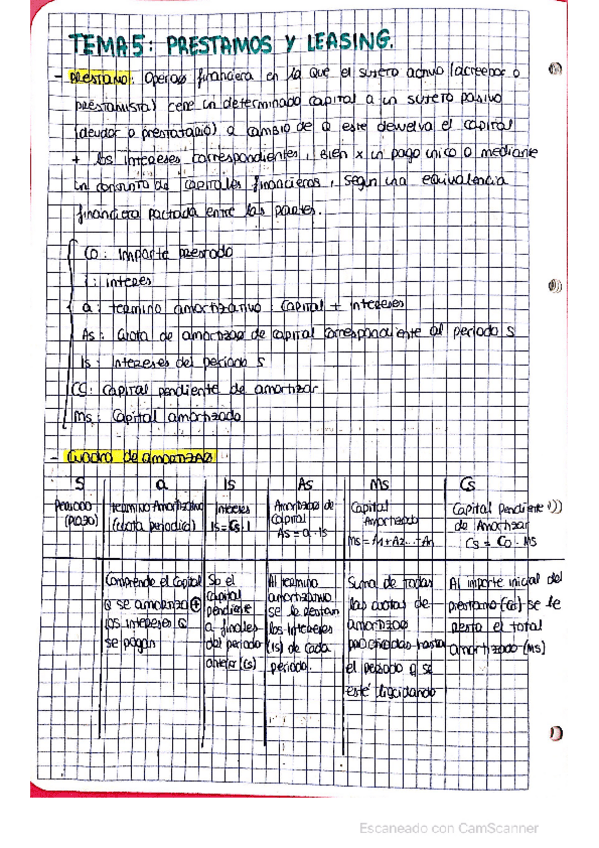 TEMA 5: PRESTAMOS Y LEASING.
- PRESTAMO: Operac financiera en la que el sujeto activo (acreedor o
prestamista) cede un determinado capital a un sujeto pasivo
(deudor o prestatario) a cambio de q este devuelva el capital
+ los intereses correspondientes, bien x un pago unico o mediante
un conjunto de capitales financieros, segun una equivalencia
financiera pactada entre las partes.
Co: importe prestado
i: interes
a: termino amortizativo: Capital + intereses
As: Cuota de amortizac de capital correspondiente al periodo S
Is: Intereses del periodo S
Cs: Capital pendiente de amortizar
Ms: Capital amortizado
- Cuadro de amortizac
S a Is As Ms Cs
Periodo (Plazo)
termino Amortizativo (cuota periodica)
Intereses Is = Cs · i
Amortizac de Capital As = a - Is
Capital Amortizado Ms = A1 + A2 ... + An
Capital pendiente de Amortizar Cs = Co - Ms
Comprende el Capital q se amortiza ⊕ los intereses q se pagan
So el capital pendiente a finales del periodo anterior (s)
Al termino amortizativo se le restan los intereses (Is) de cada periodo.
Suma de todas las cuotas de amortizac practicadas hasta el periodo q se esté liquidando
Al importe inicial del prestamo (Co) se le resta el total amortizado (Ms)
Escaneado con CamScanner